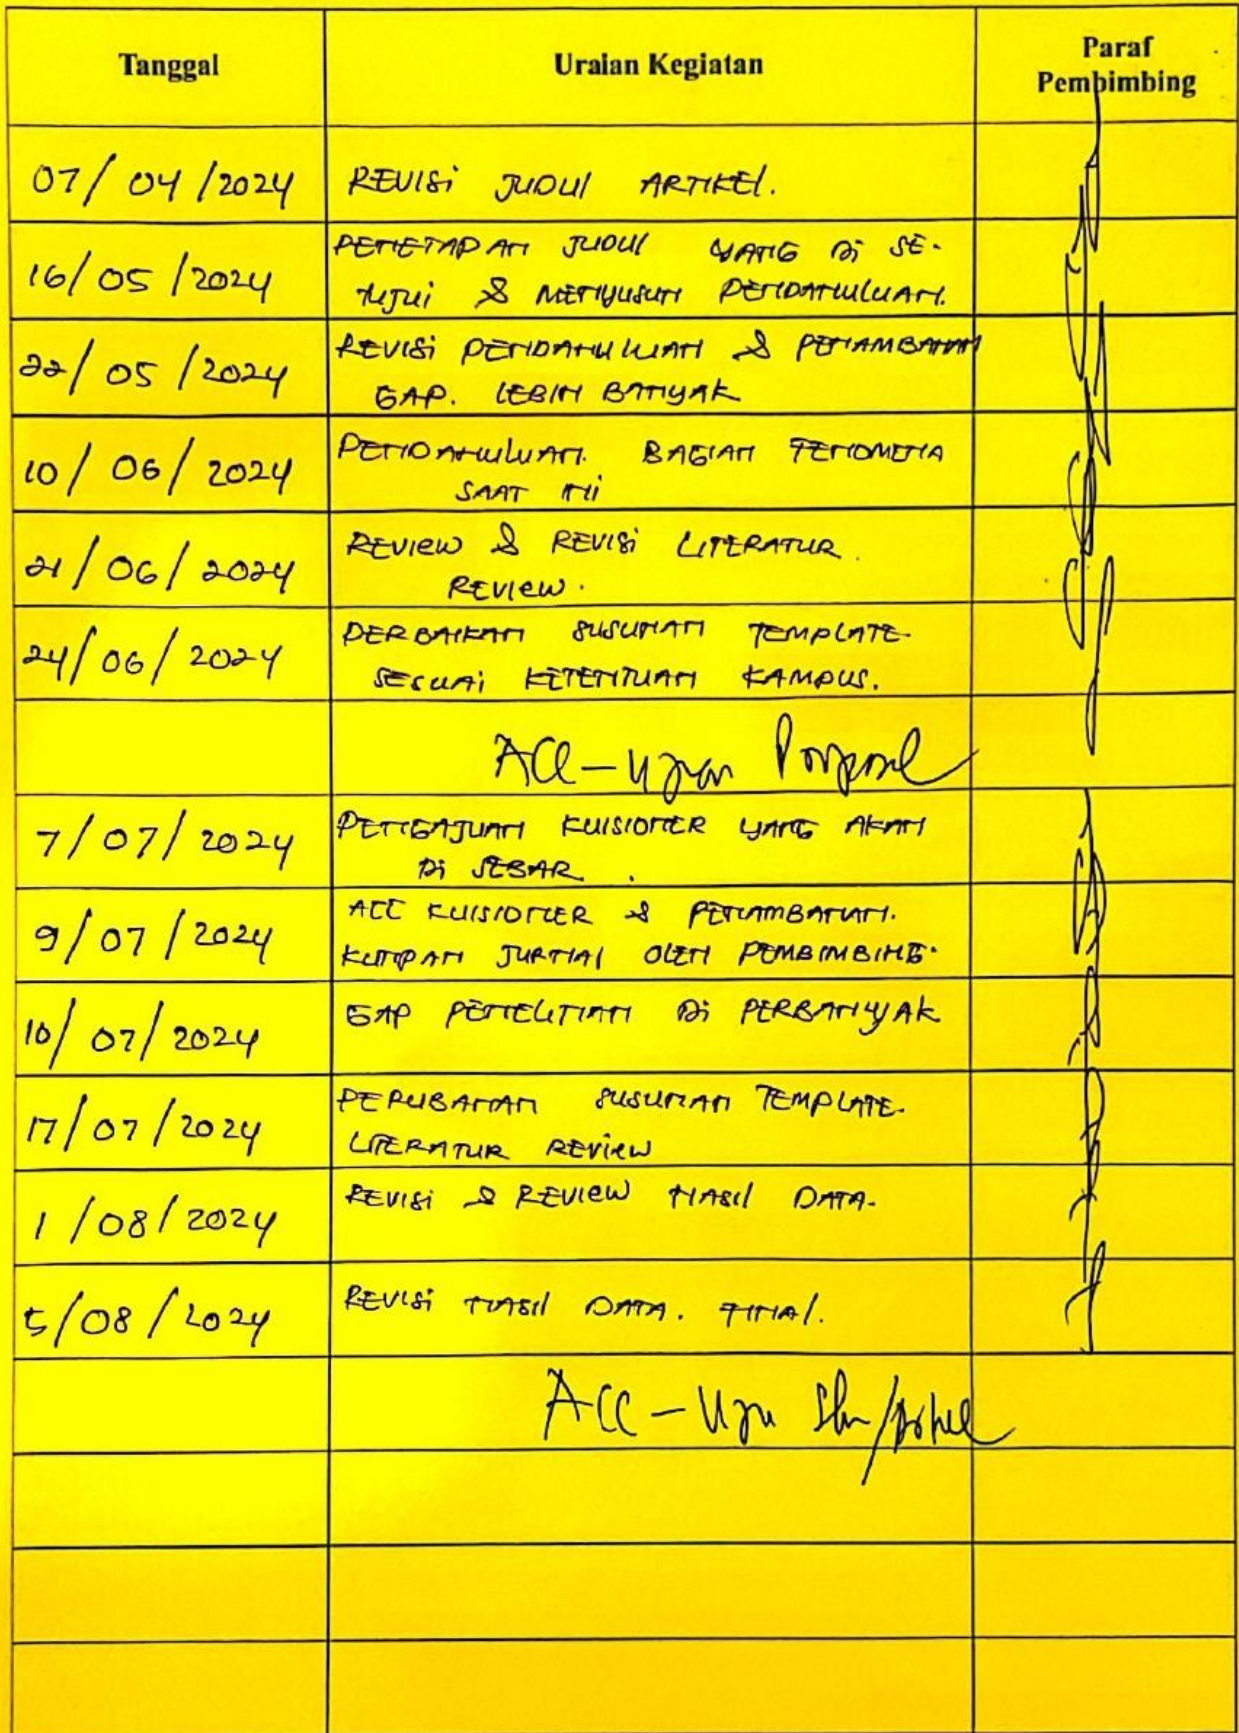 Tanggal
Uraian Kegiatan
Paraf
Pembimbing
07/04/2024
REVISI JUDUl ARTIKEl.
16/05/2024
PENETAPAN JUDUl YANG Di SE-
tujui & MENYUSUN PENDAHULUAN.
22/05/2024
REVISI PENDAHULUAN & PENAMBAHAN
GAP. LEBIH BANYAK
10/06/2024
PENDAHULUAN. BAGIAN FENOMENA
SAAT INI
21/06/2024
REVIEW & REVISI LITERATUR
REVIEW.
24/06/2024
PERBAIKAN SUSUNAN TEMPLATE.
SESUAI KETENTUAN KAMPUS.
ACC - Ujian Proposal
7/07/2024
PENGAJUAN KUISIONER YANG AKAN
Di SEBAR.
9/07/2024
ACC KUISIONER & PENAMBAHAN.
KUTIPAN JURNAl OLEH PEMBIMBING.
10/07/2024
GAP PENELITIAN Di PERBANYAK
17/07/2024
PERUBAHAN SUSUNAN TEMPLATE.
LITERATUR REVIEW
1/08/2024
REVISI & REVIEW HASIl DATA.
5/08/2024
REVISI HASIl DATA. FINAl.
ACC - Ujian